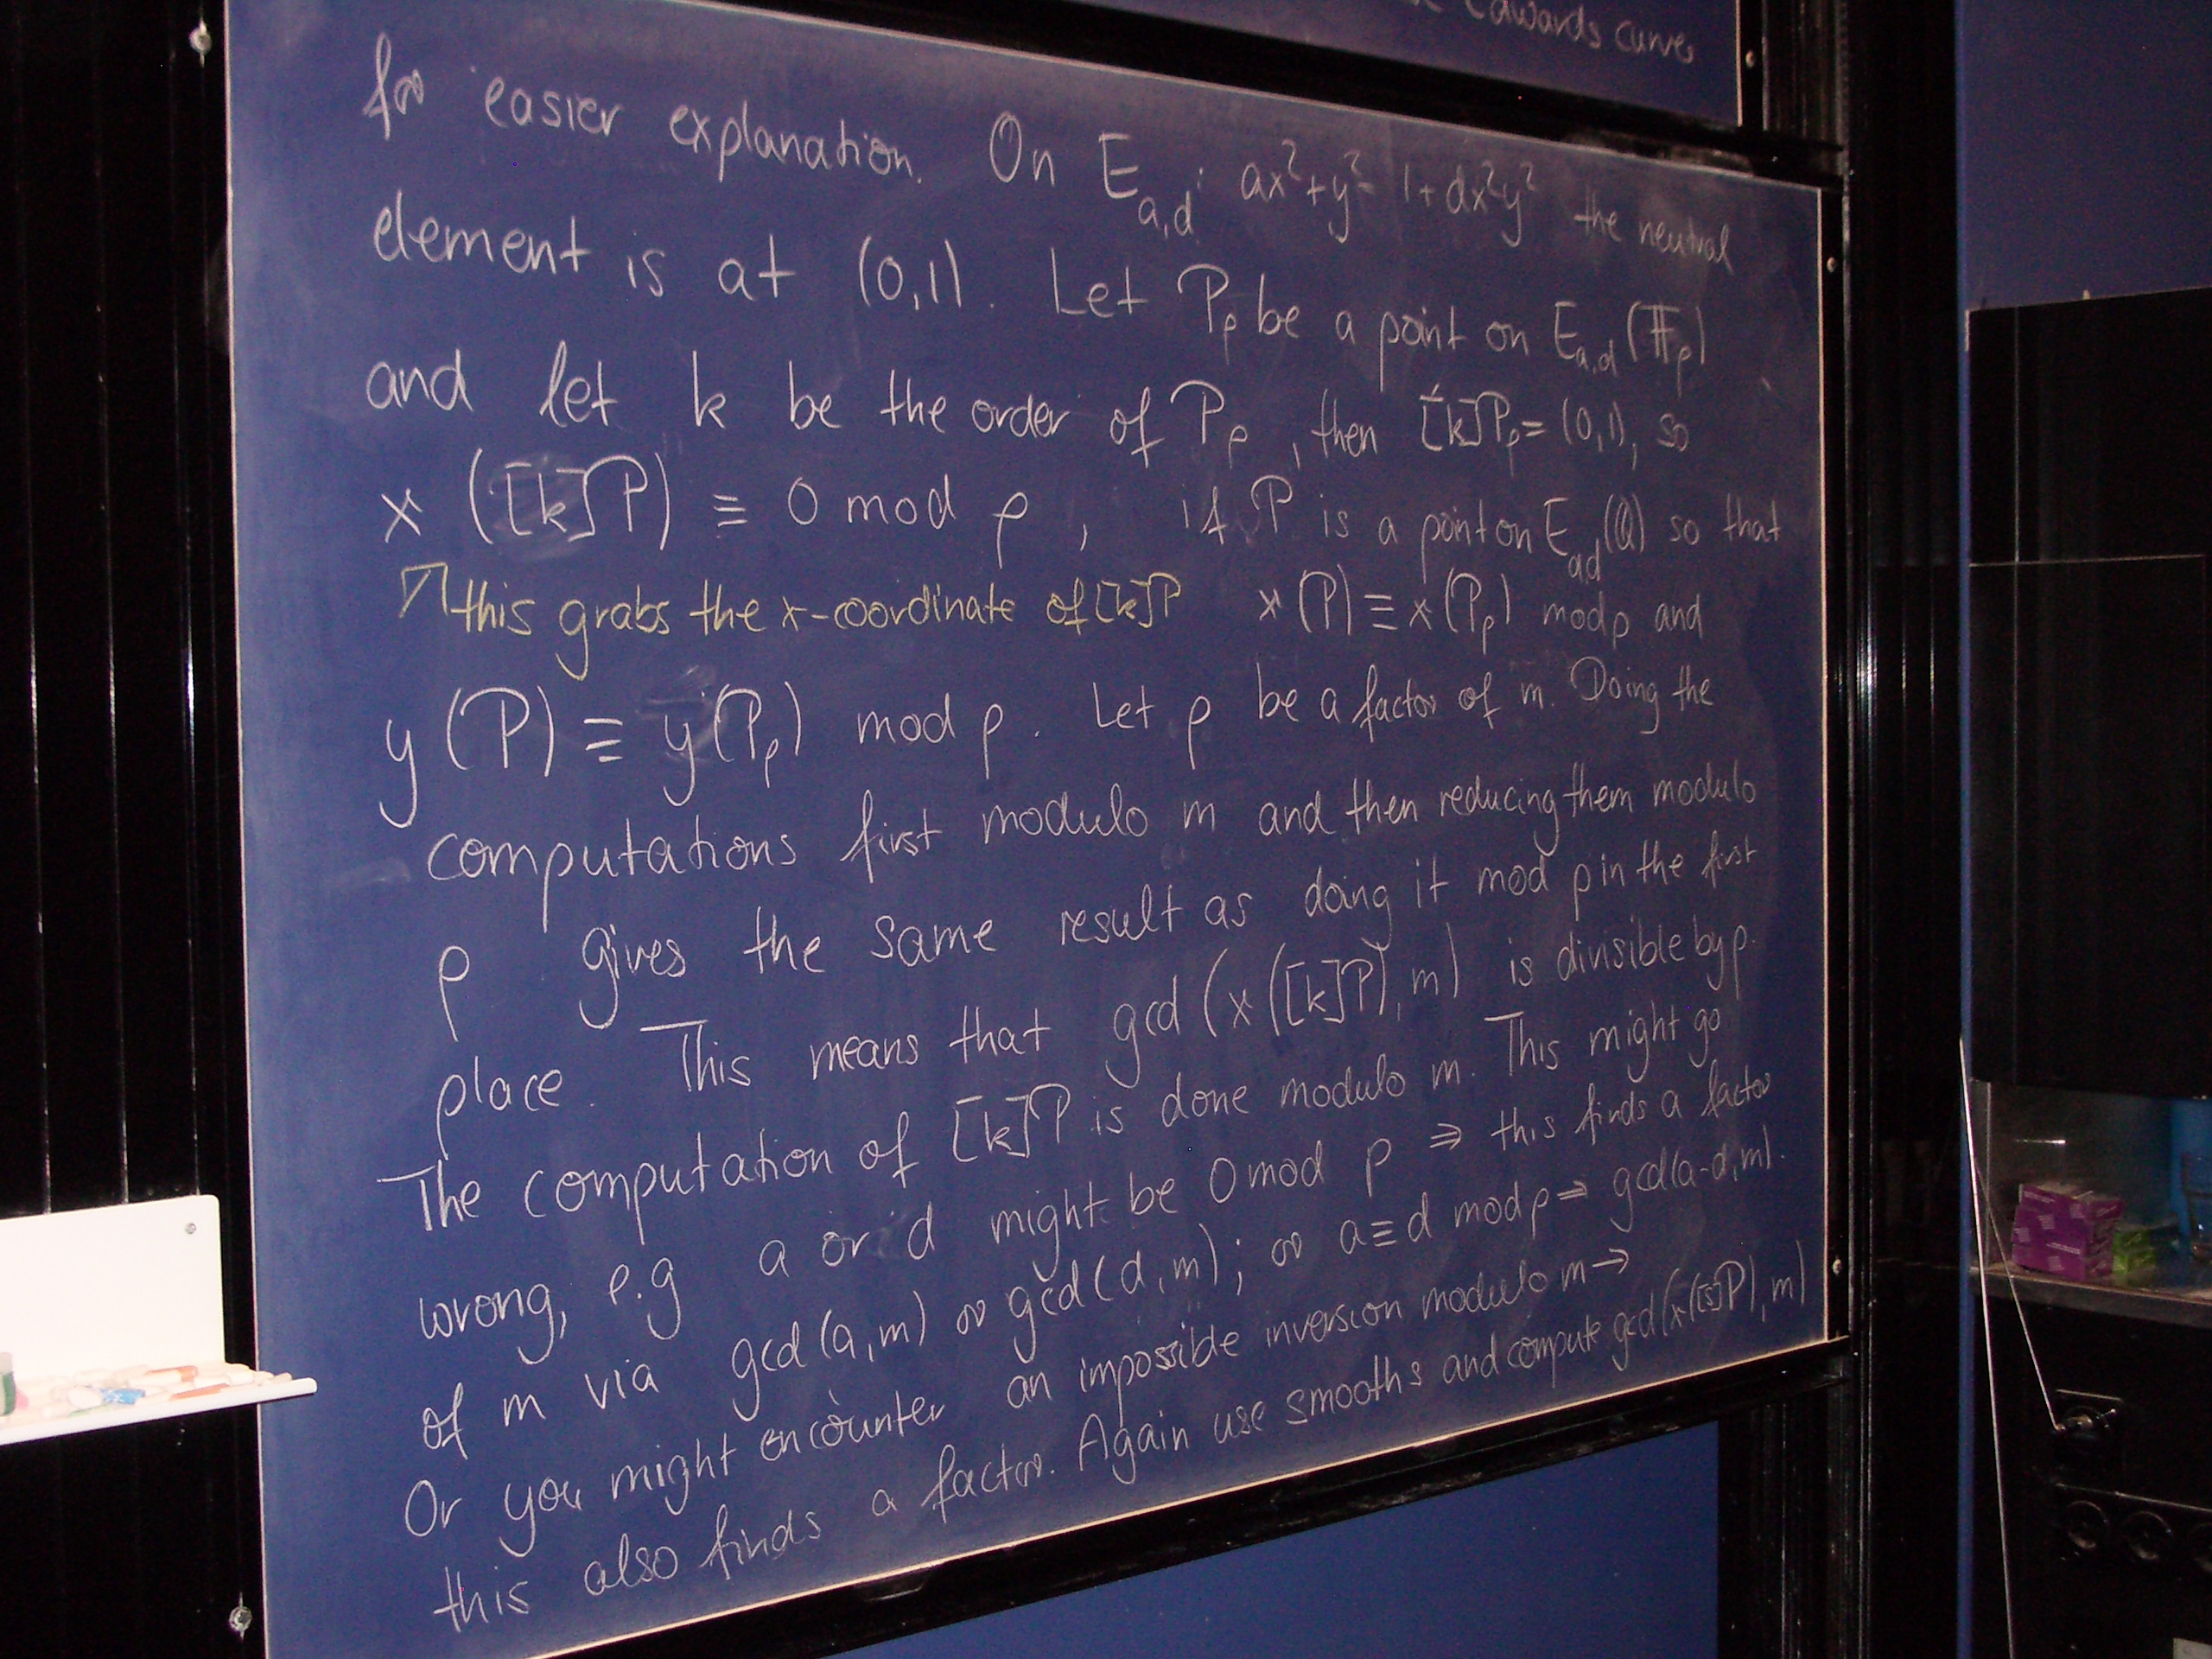 Edwards curves
for easier explanation. On E_{a,d}: ax²+y²=1+dx²y² the neutral
element is at (0,1). Let P_p be a point on E_{a,d}(𝔽_p)
and let k be the order of P_p, then [k]P_p=(0,1), so
x([k]P) ≡ 0 mod p, if P is a point on E_{ad}(Q) so that
↗ this grabs the x-coordinate of [k]P x(P)≡x(P_p) mod p and
y(P) ≡ y(P_p) mod p. Let p be a factor of m. Doing the
computations first modulo m and then reducing them modulo
p gives the same result as doing it mod p in the first
place. This means that gcd(x([k]P),m) is divisible by p.
The computation of [k]P is done modulo m. This might go
wrong, e.g a or d might be 0 mod p ⇒ this finds a factor
of m via gcd(a,m) or gcd(d,m); or a≡d mod p ⇒ gcd(a-d,m).
Or you might encounter an impossible inversion modulo m →
this also finds a factor. Again use smooth s and compute gcd(x([s]P),m)